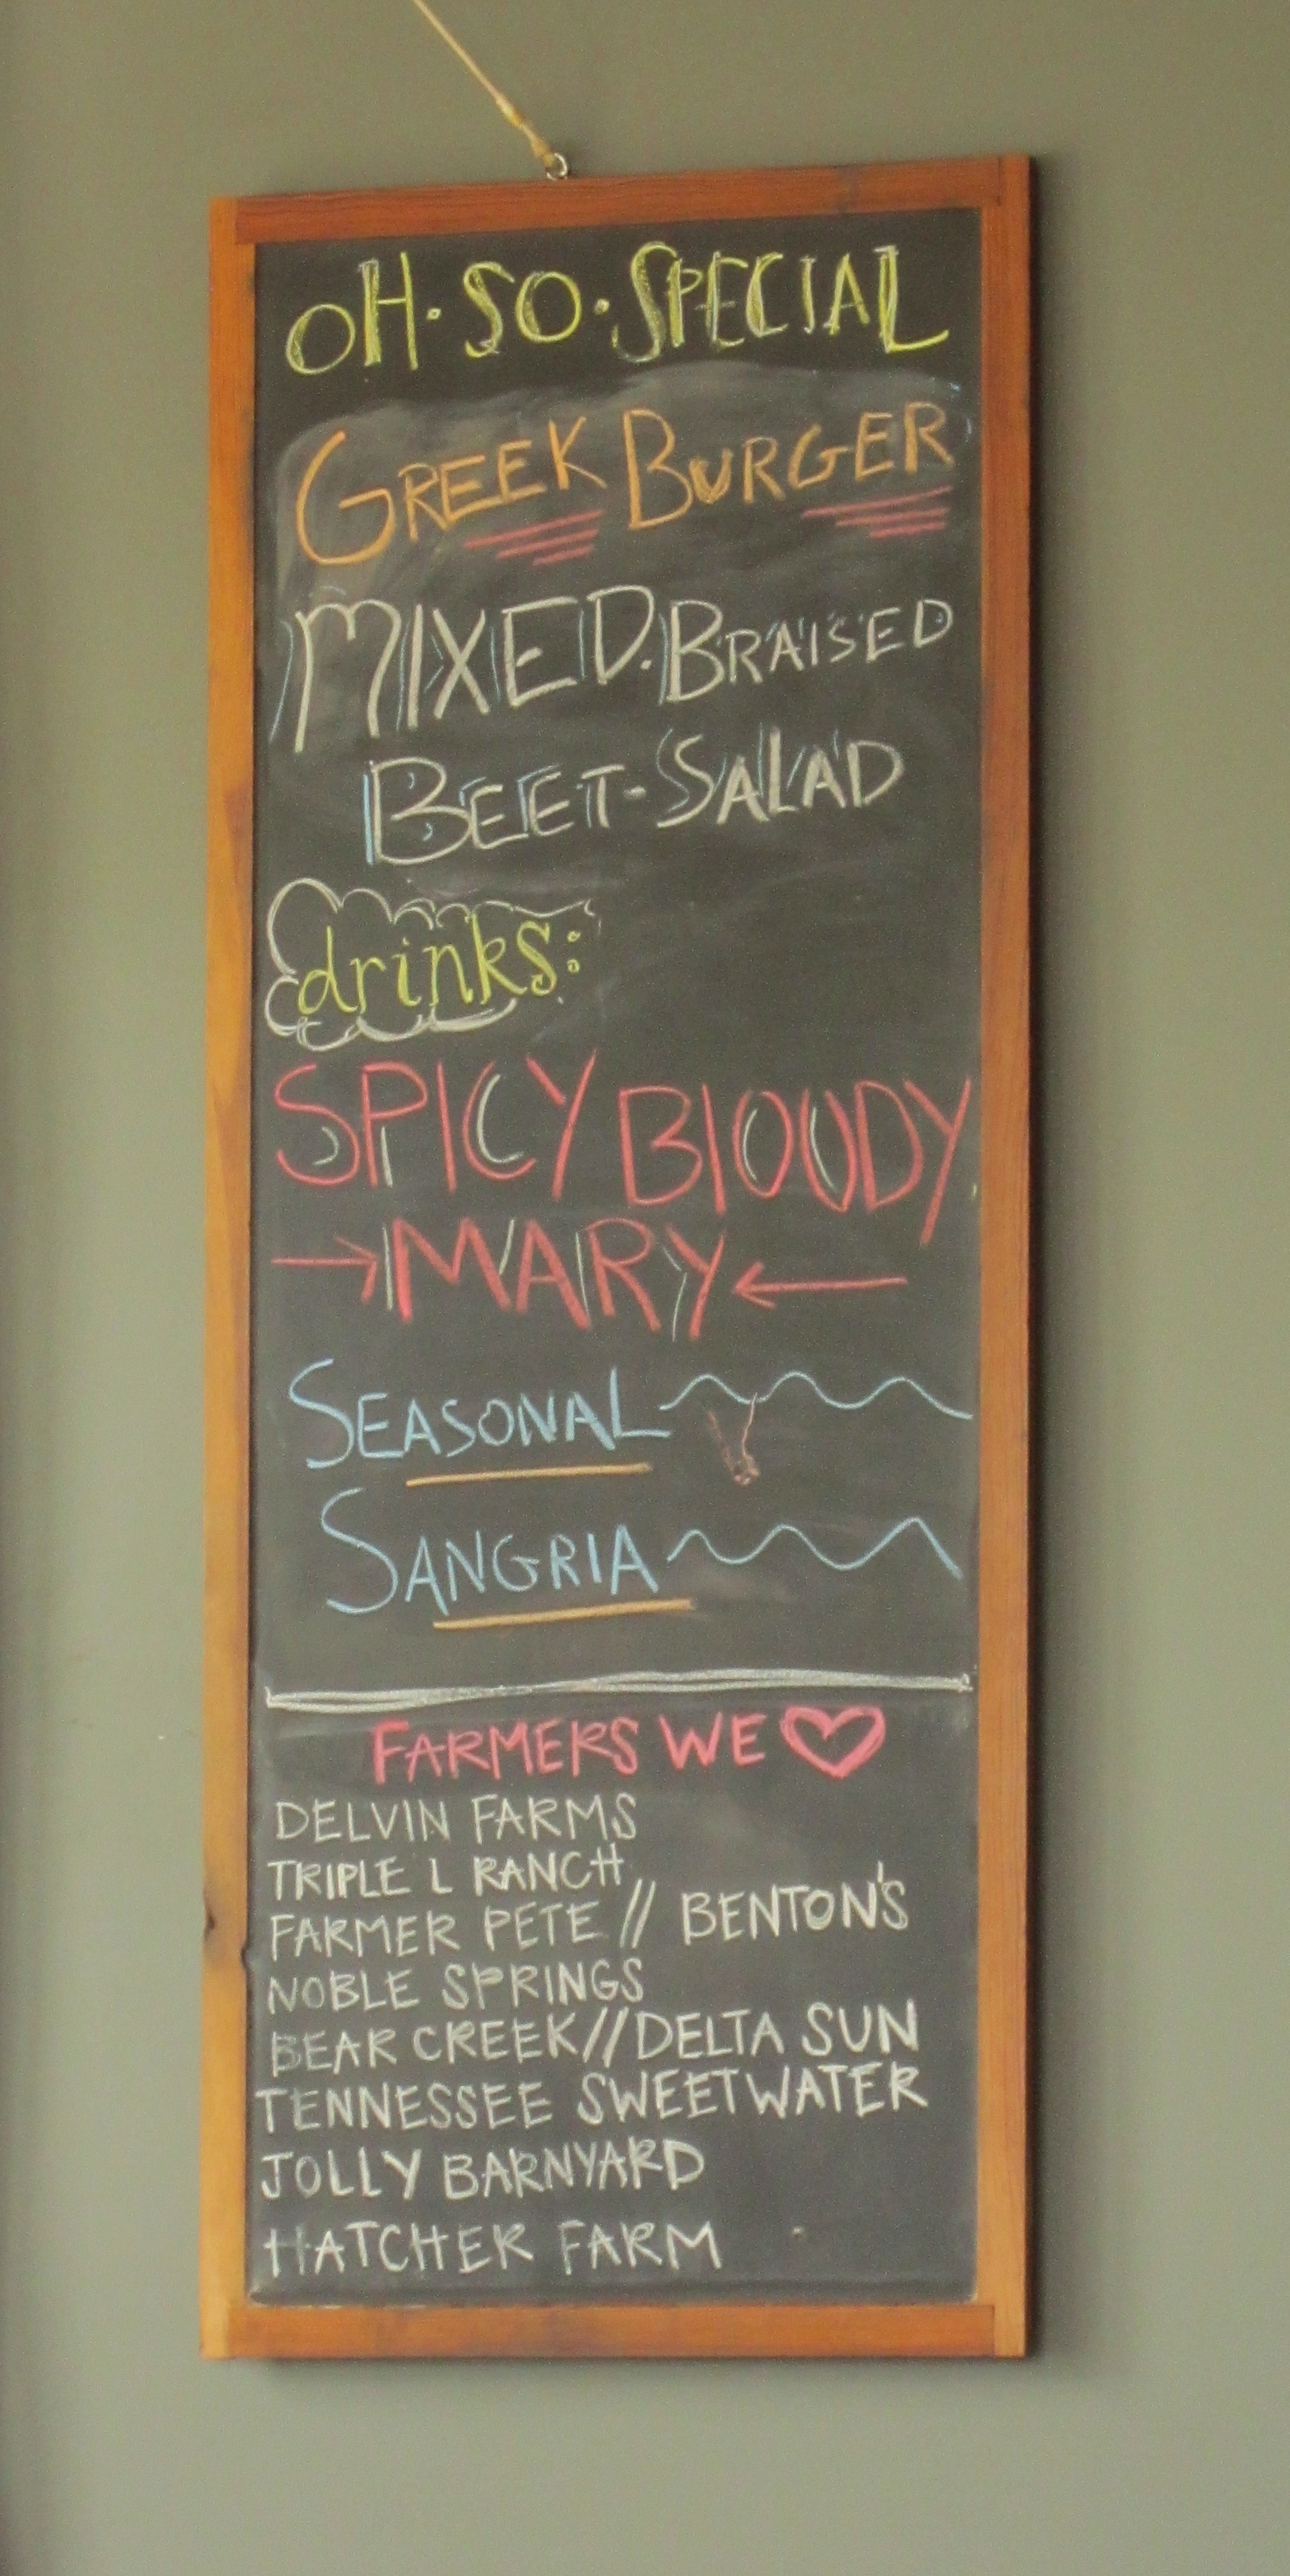 OH·SO·SPECIAL
GREEK BURGER
MIXED·BRAISED
BEET-SALAD
drinks:
SPICY BlOODY
→MARY←
SEASONAL
SANGRIA
FARMERS WE ♡
DELVIN FARMS
TRIPLE L RANCH
FARMER PETE // BENTON'S
NOBLE SPRINGS
BEAR CREEK//DELTA SUN
TENNESSEE SWEETWATER
JOLLY BARNYARD
HATCHER FARM